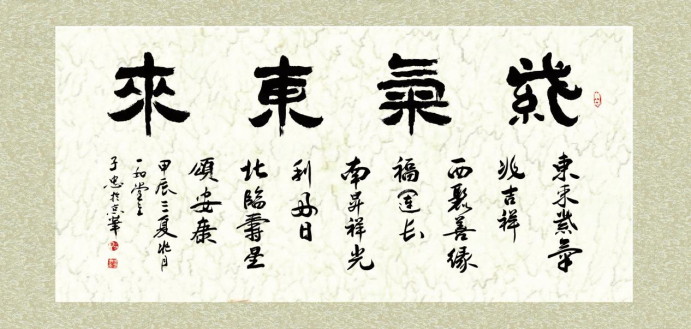 紫氣東來
東來紫氣
兆吉祥
西聚善緣
福運长
南昇祥光
利丹日
北臨壽星
頌安康
甲辰三夏
一和堂主
子忠於京華